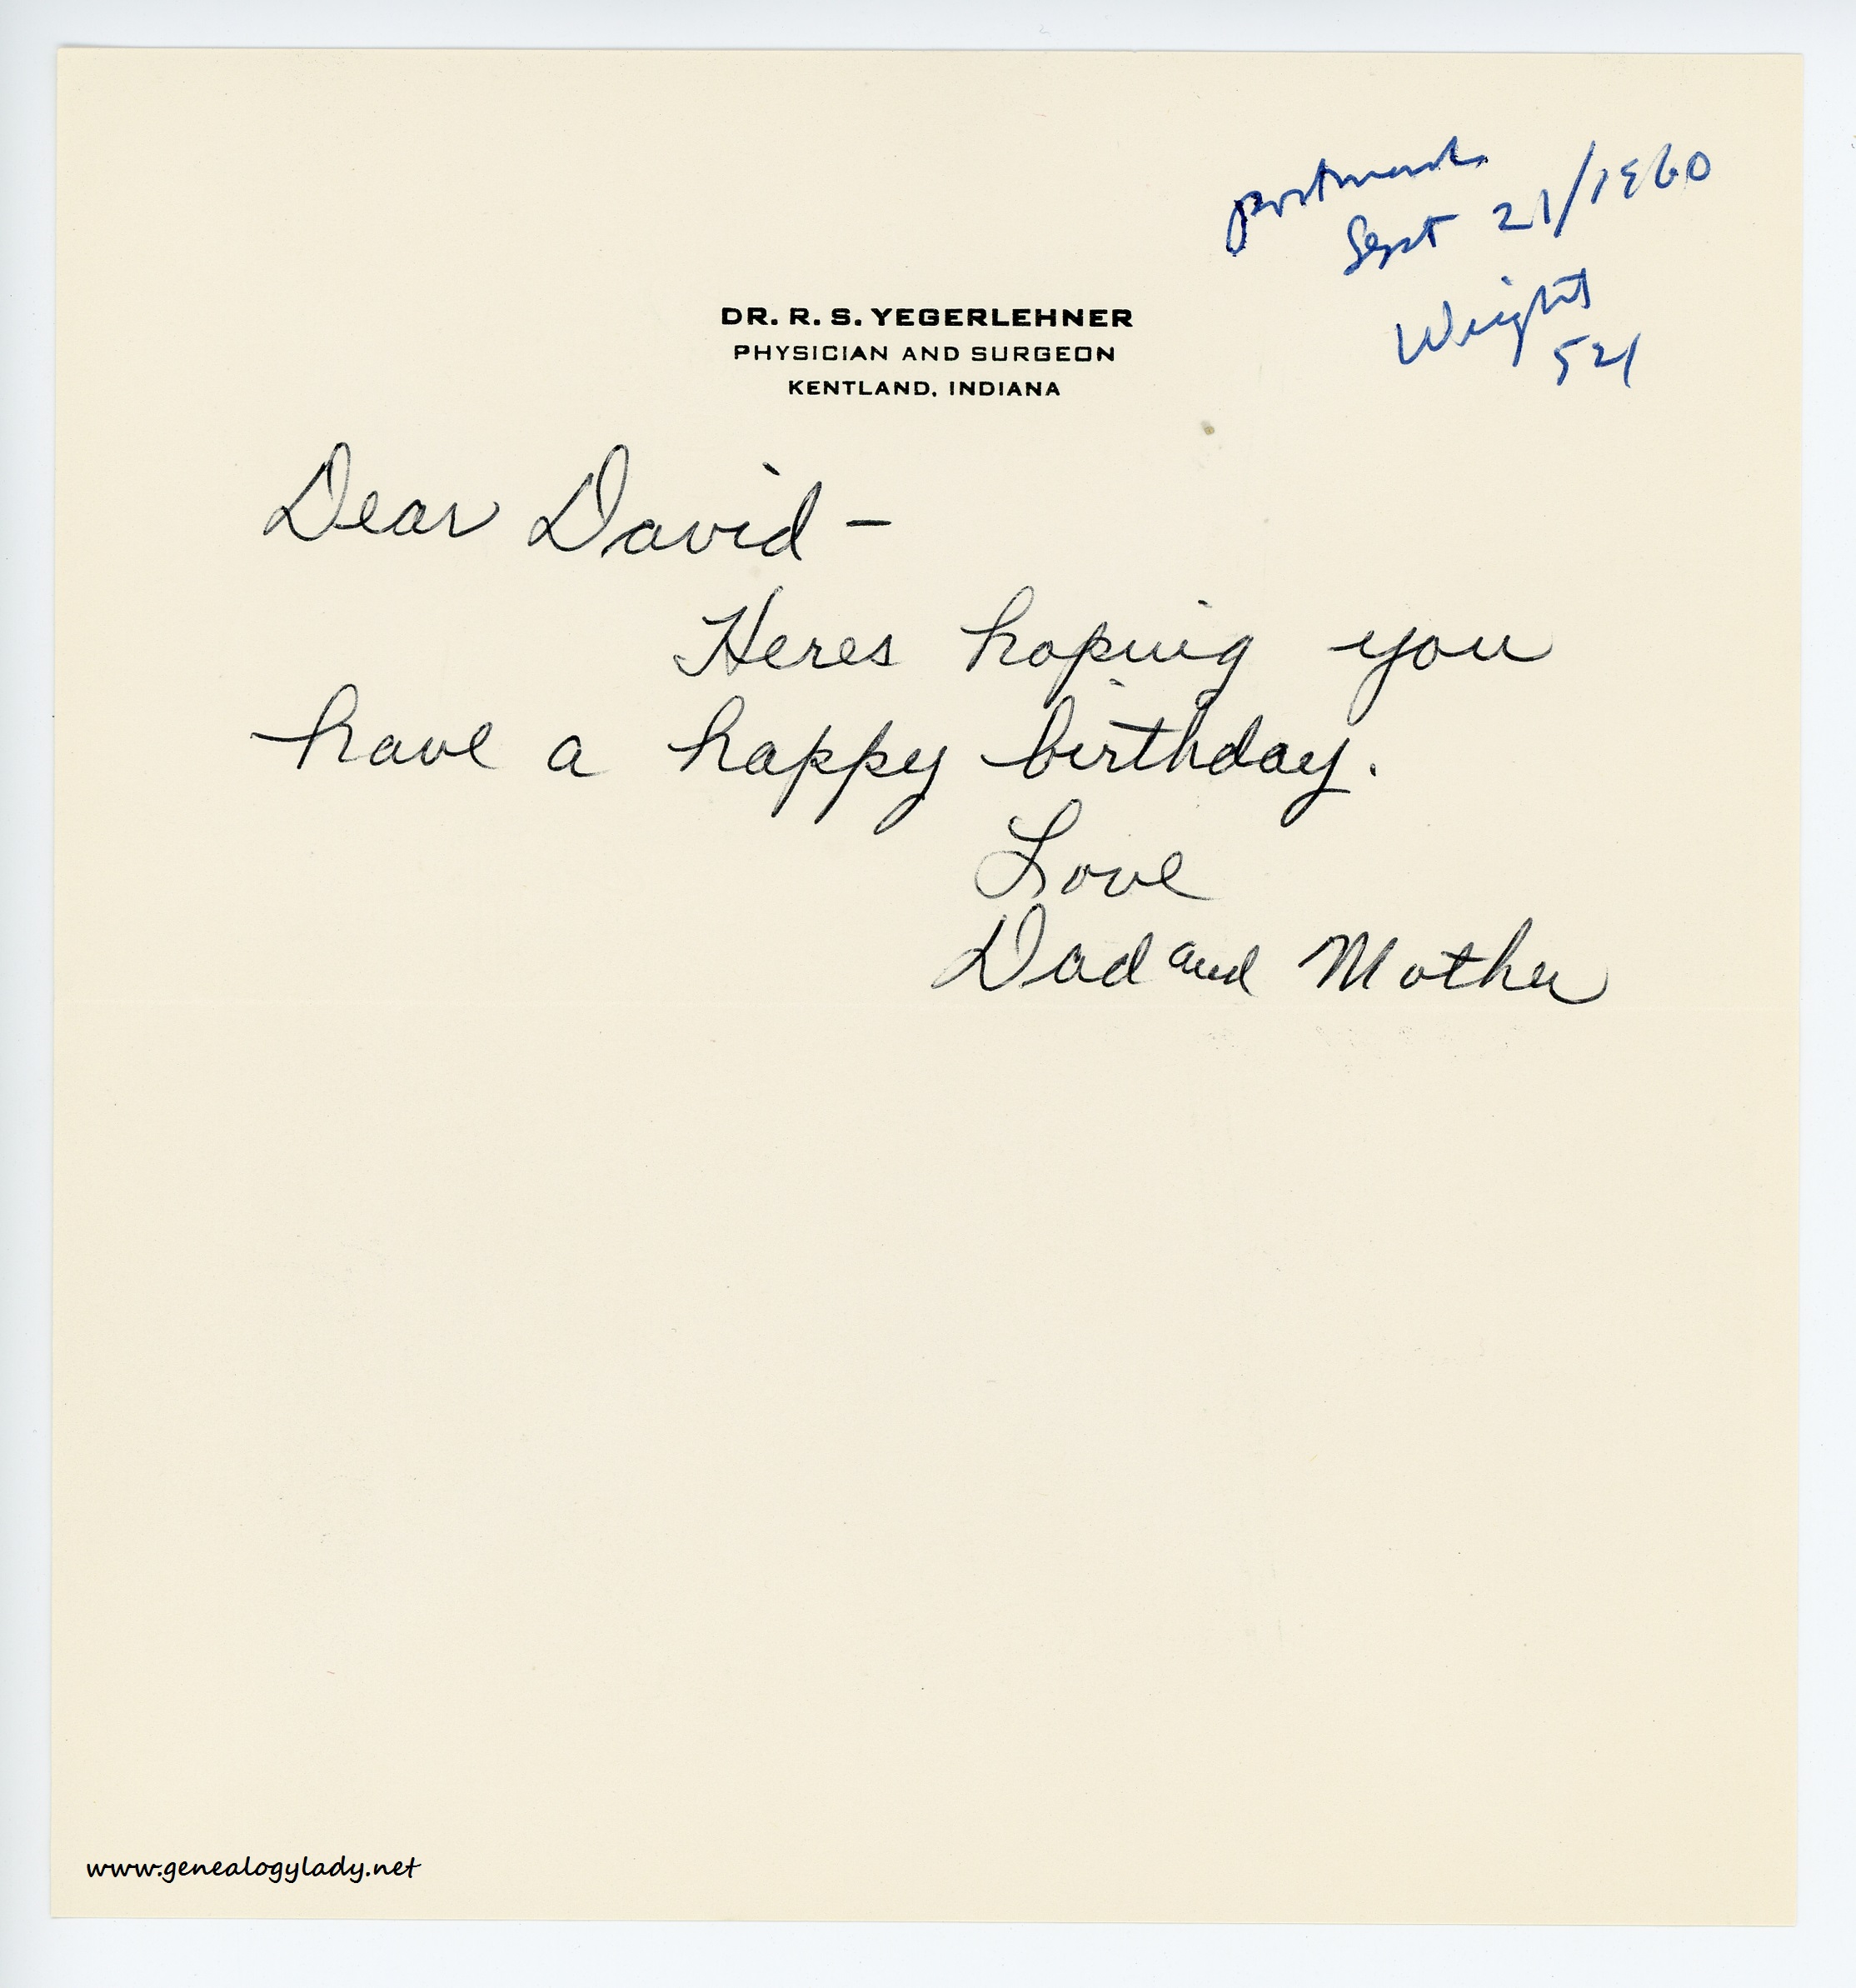 postmark
Sept 21/1960
Wright
521
DR. R. S. YEGERLEHNER
PHYSICIAN AND SURGEON
KENTLAND, INDIANA
Dear David –
Heres hoping you
have a happy birthday.
Love
Dad and Mother
www.genealogylady.net